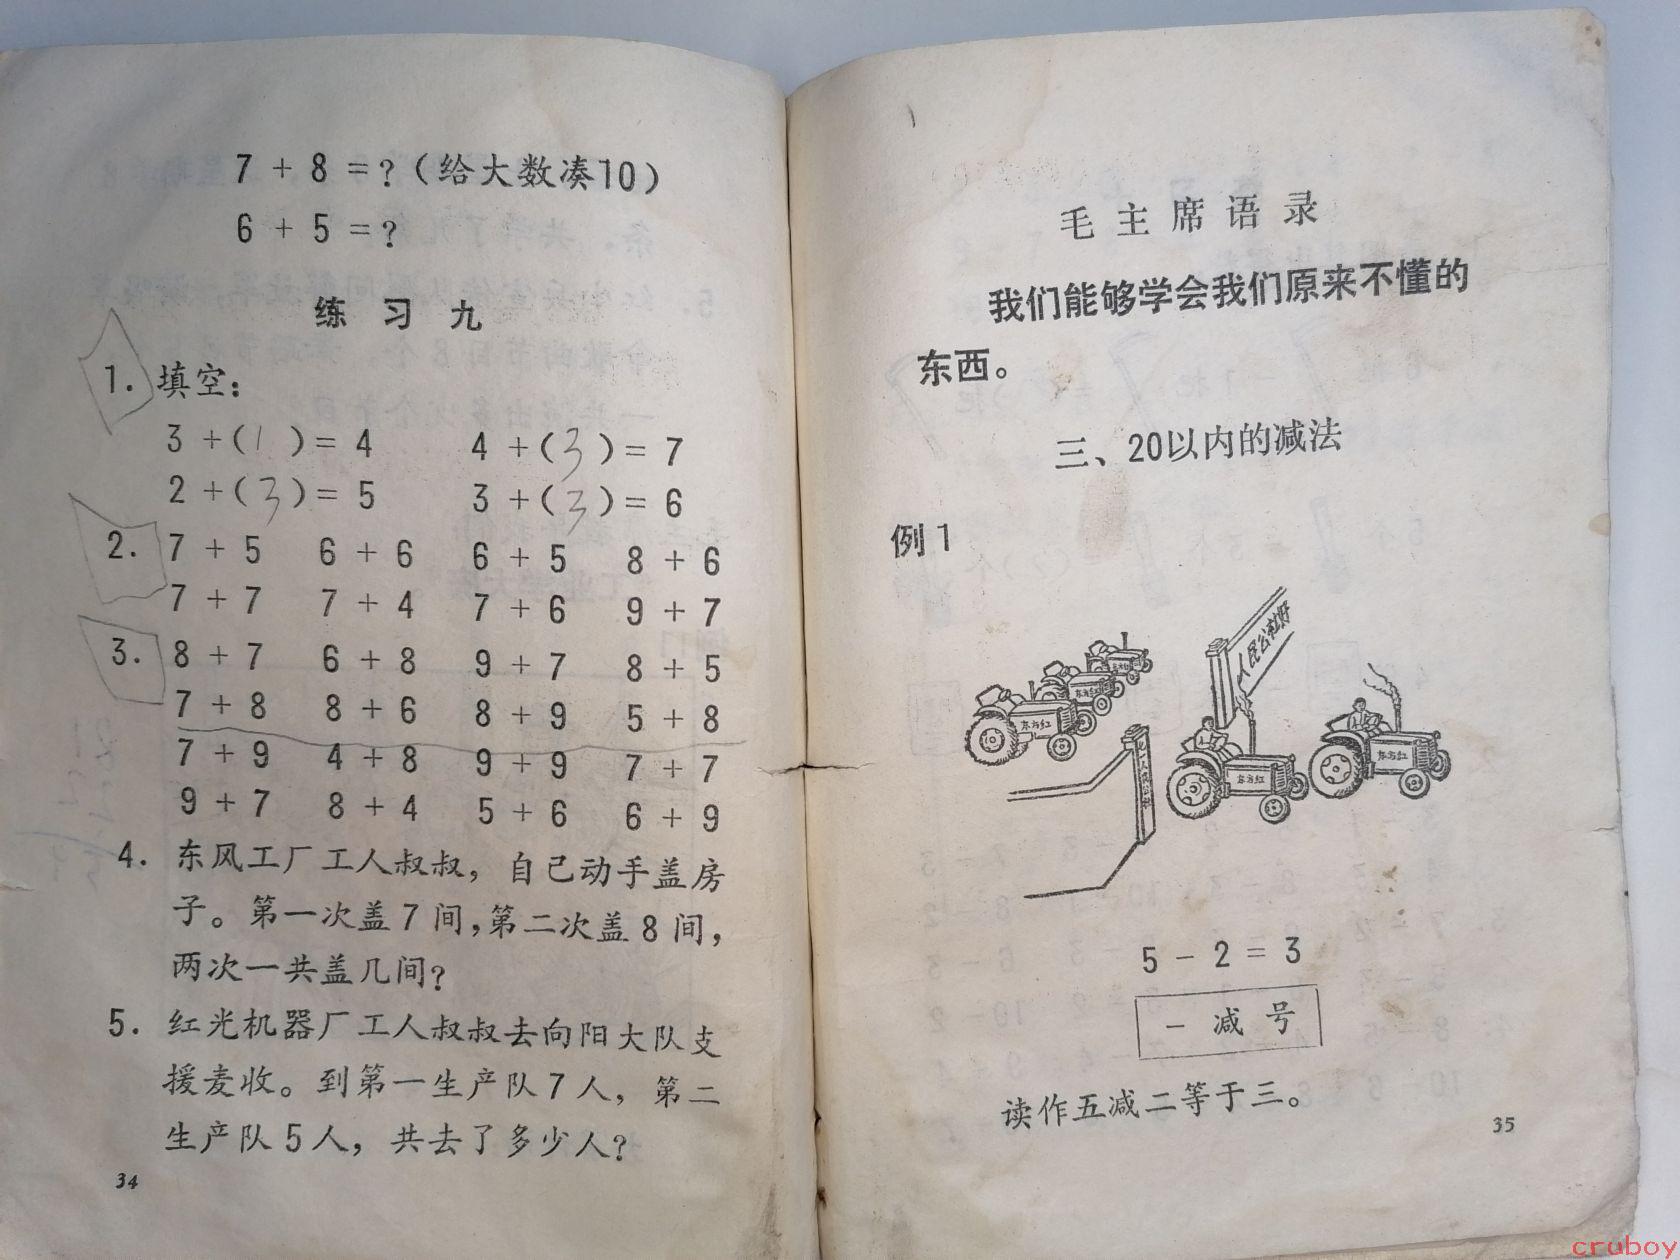 7 + 8 = ? (给大数凑10)
6 + 5 = ?
练 习 九
1. 填空:
3 + ( 1 ) = 4 4 + ( 3 ) = 7
2 + ( 3 ) = 5 3 + ( 3 ) = 6
2. 7 + 5 6 + 6 6 + 5 8 + 6
7 + 7 7 + 4 7 + 6 9 + 7
3. 8 + 7 6 + 8 9 + 7 8 + 5
7 + 8 8 + 6 8 + 9 5 + 8
7 + 9 4 + 8 9 + 9 7 + 7
9 + 7 8 + 4 5 + 6 6 + 9
4. 东风工厂工人叔叔，自己动手盖房
子。第一次盖7间,第二次盖8间,
两次一共盖几间?
5. 红光机器厂工人叔叔去向阳大队支
援麦收。到第一生产队7人，第二
生产队5人，共去了多少人?
34
毛主席语录
我们能够学会我们原来不懂的
东西。
三、20以内的减法
例1
人民公社好
东方红
东方红
东方红
东方红
5 - 2 = 3
- 减 号
读作五减二等于三。
35
cruboy